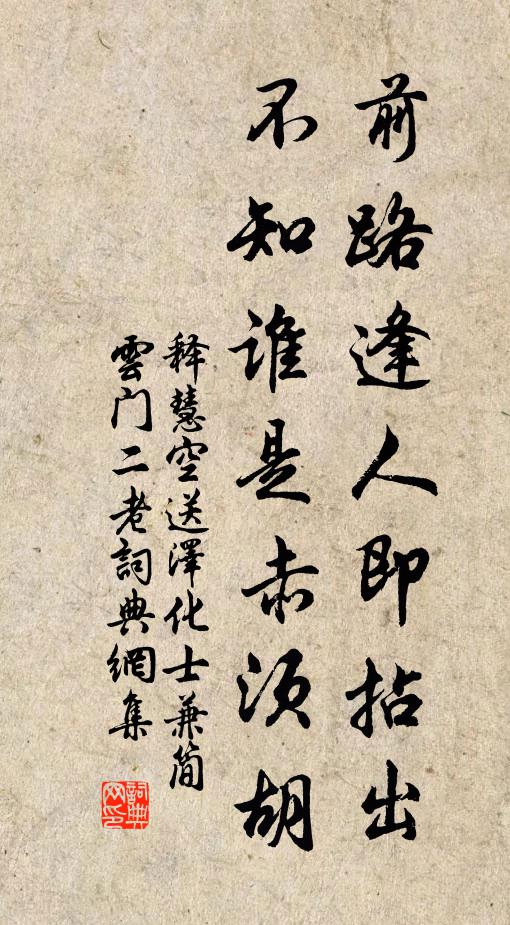 前路逢人即拈出
不知谁是赤须胡
释慧空送澤化士兼简
雲门二老詞典網集
詞典
网印